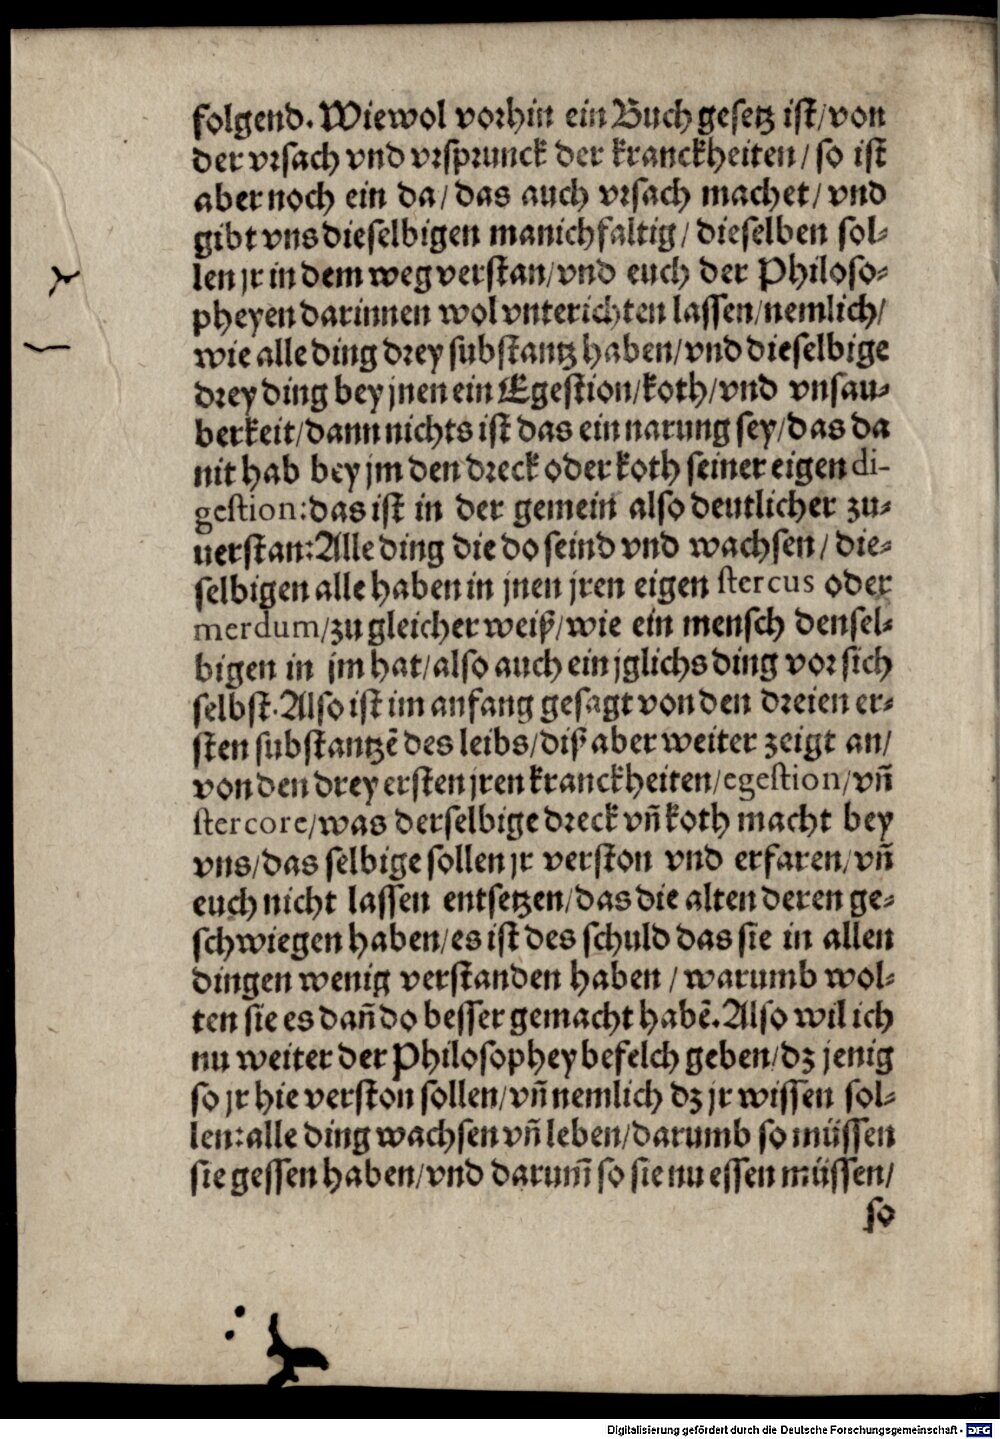 folgend. Wiewol vorhin ein Buch gesetz ist/von
der vrsach vnd vrsprunck der kranckheiten/ so ist
aber noch ein da/ das auch vrsach machet/ vnd
gibt vns dieselbigen manichfaltig/ dieselben sol⸗
len jr in dem weg verstan/vnd euch der Philoso⸗
pheyen darinnen wol vnterichten lassen/nemlich/
wie alle ding drey substantz haben/vnd dieselbige
drey ding bey jnen ein Egestion/koth/vnd vnsau⸗
berkeit/dann nichts ist das ein narung sey/das da
nit hab bey jm den dreck oder koth seiner eigen di-
gestion:das ist in der gemein also deutlicher zu⸗
uerstan:Alle ding die do seind vnd wachsen/ die⸗
selbigen alle haben in jnen jren eigen stercus oder
merdum/zu gleicher weiß/wie ein mensch densel⸗
bigen in jm hat/also auch ein jglichs ding vor sich
selbst. Also ist im anfang gesagt von den dreien er⸗
sten substantzē des leibs/diß aber weiter zeigt an/
von den drey ersten jren kranckheiten/egestion/vñ
stercore/was derselbige dreck vñ koth macht bey
vns/das selbige sollen jr verston vnd erfaren/vñ
euch nicht lassen entsetzen/das die alten deren ge⸗
schwiegen haben/es ist des schuld das sie in allen
dingen wenig verstanden haben / warumb wol⸗
ten sie es dañ do besser gemacht habē. Also wil ich
nu weiter der Philosophey befelch geben/dz jenig
so jr hie verston sollen/vñ nemlich dz jr wissen sol⸗
len:alle ding wachsen vñ leben/darumb so müssen
sie gessen haben/vnd darum̃ so sie nu essen müssen/
so
Digitalisierung gefördert durch die Deutsche Forschungsgemeinschaft - DFG